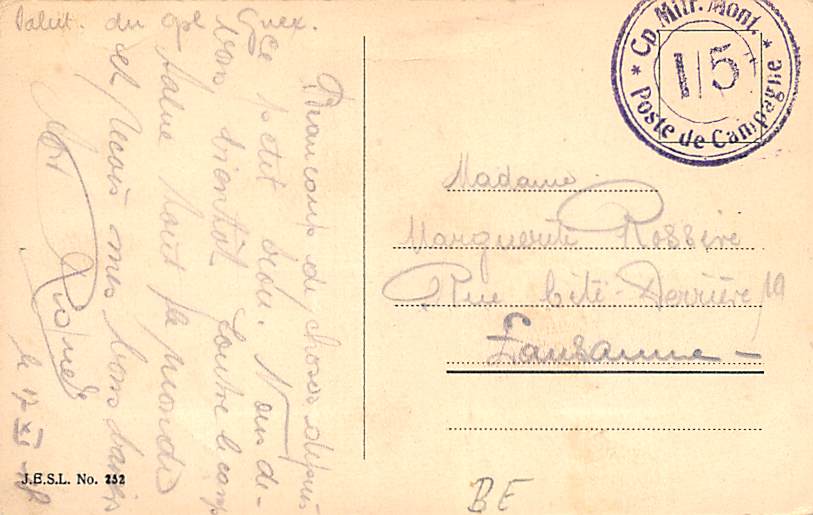 Cp. Mitr. Mont.
1/5
Poste de Campagne
Beaucoup de choses depuis
ce petit trou. Nous de-
vons bientôt le camp
Salue tout le monde
et reçois mes bons baisers
le 17 XI
Salut. du cpl Guex.
Madame
Marguerite Rossire
Rue Cité-Derrière 19
Lausanne -
J.E.S.L. No. 252
BE